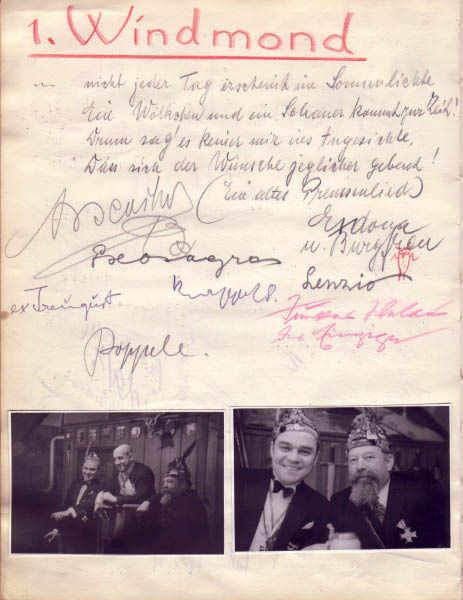 1. Windmond
... nicht jeder Tag erscheint im Sonnenlichte
Ein Wölkchen und ein Schauer kommt zur Zeit!
Drum sag' es keiner mir ins Angesichte,
Dass sich der Wünsche jeglicher gebeut!
(Ein altes Preussenlied)
Exdona
u. Burgfrau
Leo Sagro
Lenzio
ex Treugust.
Knappels.
Poppele.